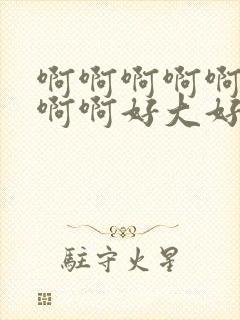 啊啊啊啊啊
啊啊好大好
駐守火星